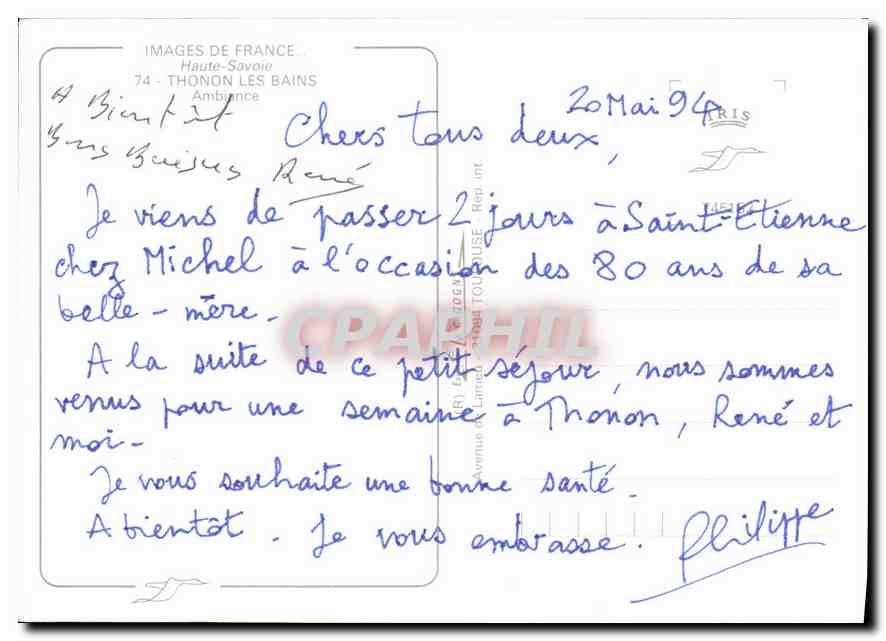 IMAGES DE FRANCE...
Haute-Savoie
74 - THONON LES BAINS
Ambiance
A Bientôt
Bons Baisers René
20 Mai 94
Chers tous deux,
Je viens de passer 2 jours à Saint-Etienne
chez Michel à l'occasion des 80 ans de sa
belle-mère.
A la suite de ce petit séjour, nous sommes
venus pour une semaine à Thonon, René et
moi.
Je vous souhaite une bonne santé.
A bientôt. Je vous embrasse. Philippe
CPAPHIL
TOULOUSE - Rep. int.